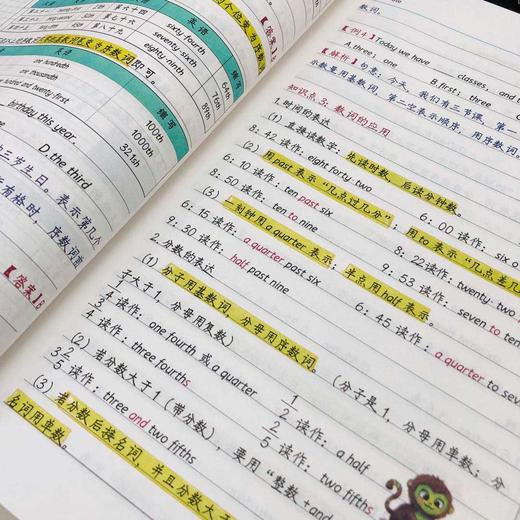 英语
缩写
第六十四
sixty fourth
64th
第七十六
seventy sixth
76th
第八十九
eighty ninth
89th
缩写
one hundredth
100th
one thousandth
1000th
321st
birthday this year.
D.the third
【答案】B
数词。
【例1】Today we have ___ classes, and
A.three; one
B.first; three
【解析】句意：今天，我们有三节课，第一
示数量用基数词，第二空表示顺序，用序数词。
知识点3：数词的应用
1.时间的表达
(1) 直接读数字：先读时数，后读分钟数。
8:42 读作：eight forty-two
6:00
(2) 用past表示“几点过几分”；用to表示“几点差几
6:10 读作：ten past six
8:50 读作：ten to nine
8:22读作：twenty-two
(3) 一刻钟用a quarter表示；半点用half表示。
6:15 读作：a quarter past six
9:53 读作：seven to ten
9:30 读作：half past nine
6:45 读作：a quarter to se
2.分数的表达
(1) 分子用基数词，分母用序数词。（分子是1，分母用单数；分
子大于1，分母用复数）
1/4 读作：one fourth 或 a quarter
1/2 读作：a half
3/4 读作：three fourths
2/5 读作：two fifths
(2) 若分数大于1（带分数），要用“整数+and
3 2/5 读作：three and two fifths
(3) 若分数后接名词，并且分数大于
名词用单数。